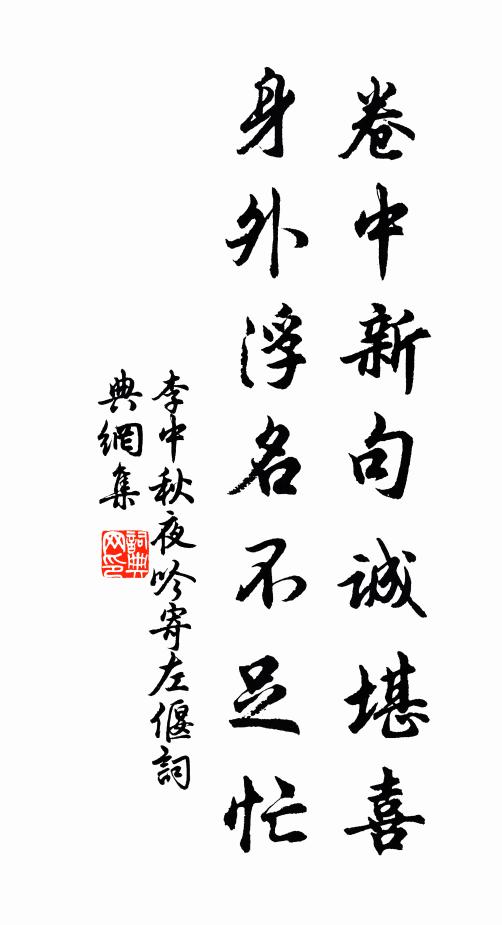 卷中新句誠堪喜
身外浮名不足忙
李中秋夜吟寄左偃詞
典網集
詞典
网印